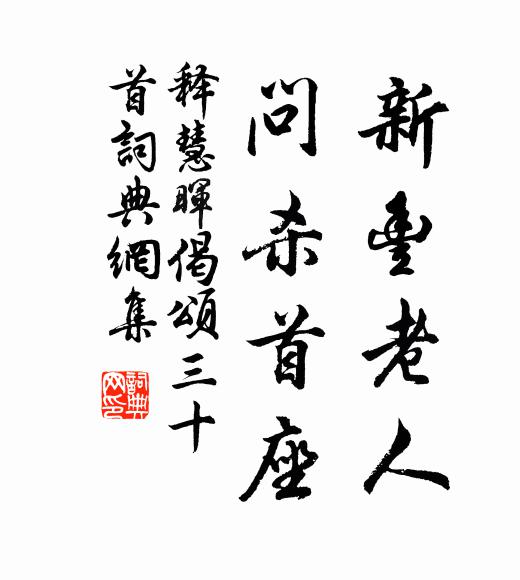 新豐老人
問杀首座
释慧暉偈頌三十
首詞典網集
詞典
网印